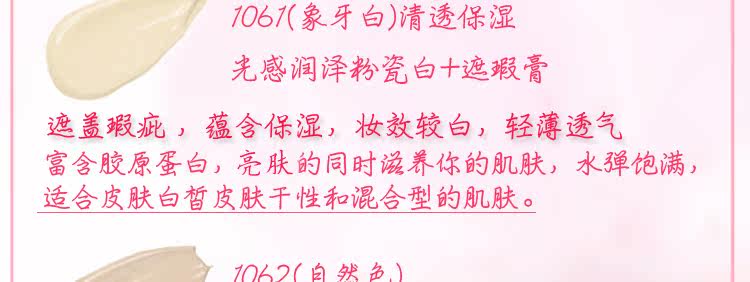 1061(象牙白)清透保湿
光感润泽粉瓷白+遮瑕膏
遮盖瑕疵，蕴含保湿，妆效较白，轻薄透气
富含胶原蛋白，亮肤的同时滋养你的肌肤，水弹饱满，
适合皮肤白皙皮肤干性和混合型的肌肤。
1062(自然色)